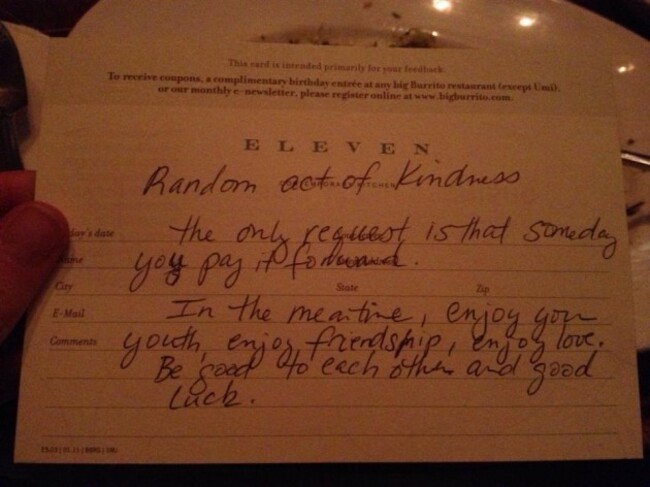 This card is intended primarily for your feedback.
To receive coupons, a complimentary birthday entrée at any big Burrito restaurant (except Umi),
or our monthly e-newsletter, please register online at www.bigburrito.com.
ELEVEN
Random act of Kindness
day's date the only request is that someday
Name you pay it forward.
City State Zip
E-Mail In the meantime, enjoy your
Comments youth, enjoy friendship, enjoy love.
Be good to each other and good
Luck.